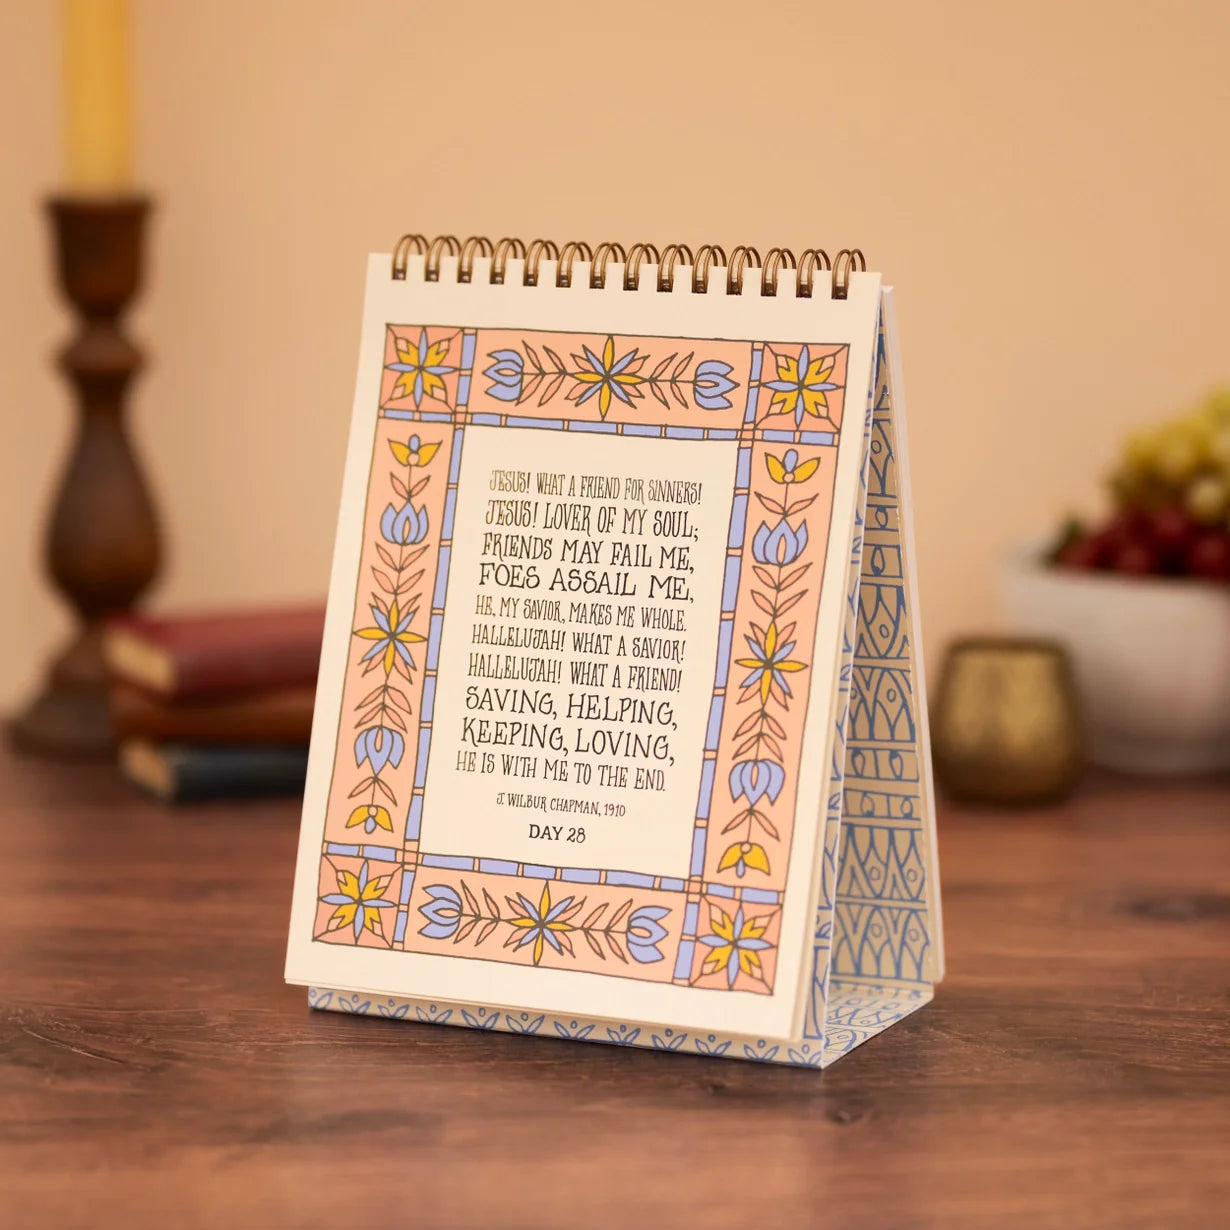 JESUS! WHAT A FRIEND FOR SINNERS!
JESUS! LOVER OF MY SOUL;
FRIENDS MAY FAIL ME,
FOES ASSAIL ME,
HE, MY SAVIOR, MAKES ME WHOLE.
HALLELUJAH! WHAT A SAVIOR!
HALLELUJAH! WHAT A FRIEND!
SAVING, HELPING,
KEEPING, LOVING,
HE IS WITH ME TO THE END.
J. WILBUR CHAPMAN, 1910
DAY 28